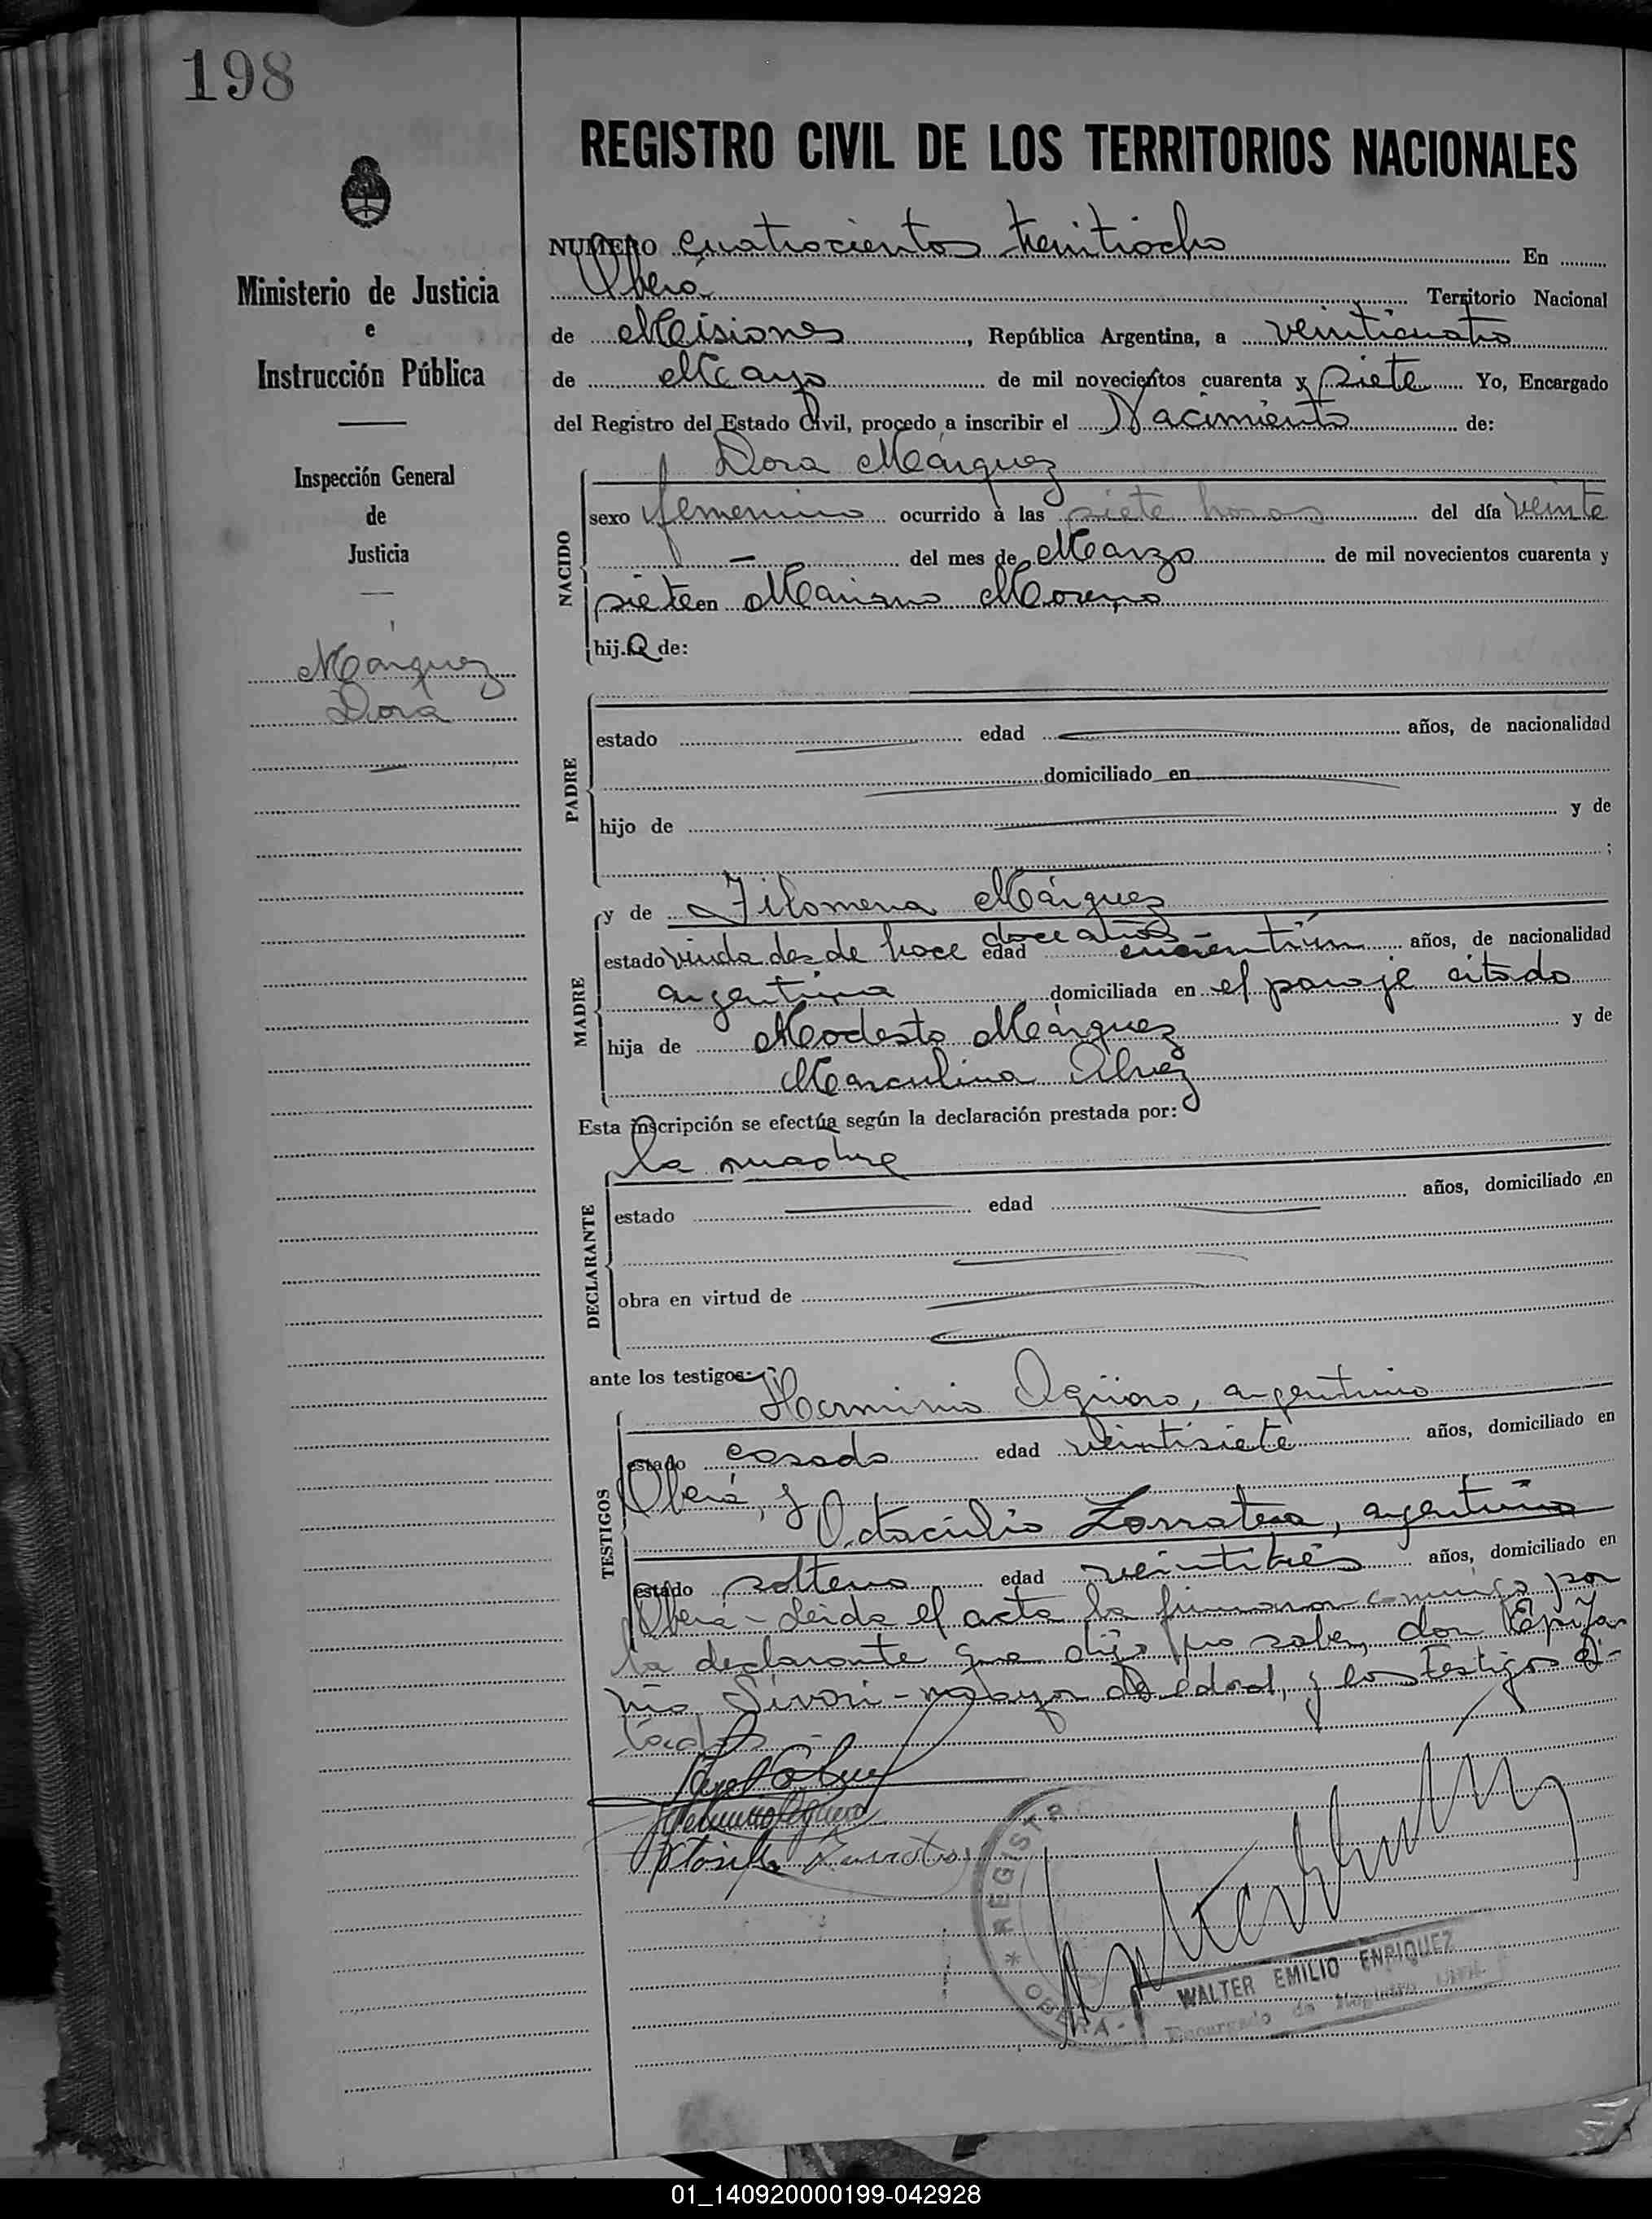 198
REGISTRO CIVIL DE LOS TERRITORIOS NACIONALES
Ministerio de Justicia
e
Instrucción Pública
Inspección General
de
Justicia
Márquez
Dora
NUMERO cuatrocientos treintiocho En
Oberá Territorio Nacional
de Misiones, República Argentina, a veinticuatro
de Mayo de mil novecientos cuarenta y siete Yo, Encargado
del Registro del Estado Civil, procedo a inscribir el Nacimiento de:
Dora Márquez
NACIDO
sexo femenino ocurrido à las siete horas del día veinte
del mes de Marzo de mil novecientos cuarenta y
siete en Mariano Moreno
hija de:
PADRE
estado edad años, de nacionalidad
domiciliado en
hijo de y de
;
MADRE
y de Filomena Márquez
estado viuda desde hace doce años edad años, de nacionalidad
argentina domiciliada en el paraje citado
hija de Modesto Márquez y de
Marculina Alvez
Esta inscripción se efectúa según la declaración prestada por:
la madre
DECLARANTE
estado edad años, domiciliado en
obra en virtud de
ante los testigos:
TESTIGOS
Herminio Agüero, argentino
estado casado edad veintisiete años, domiciliado en
Oberá, y
Octacilio Zarratea, argentino
estado soltero edad veintitrés años, domiciliado en
Oberá - Leida el acta la firmaron conmigo por
la declarante que dijo no saber, don Epifa
nio mayor de edad, y los testigos ci-
tados
REGISTRO
OBERA
WALTER EMILIO ENRIQUEZ
Encargado de Registro Civil
01_140920000199-042928